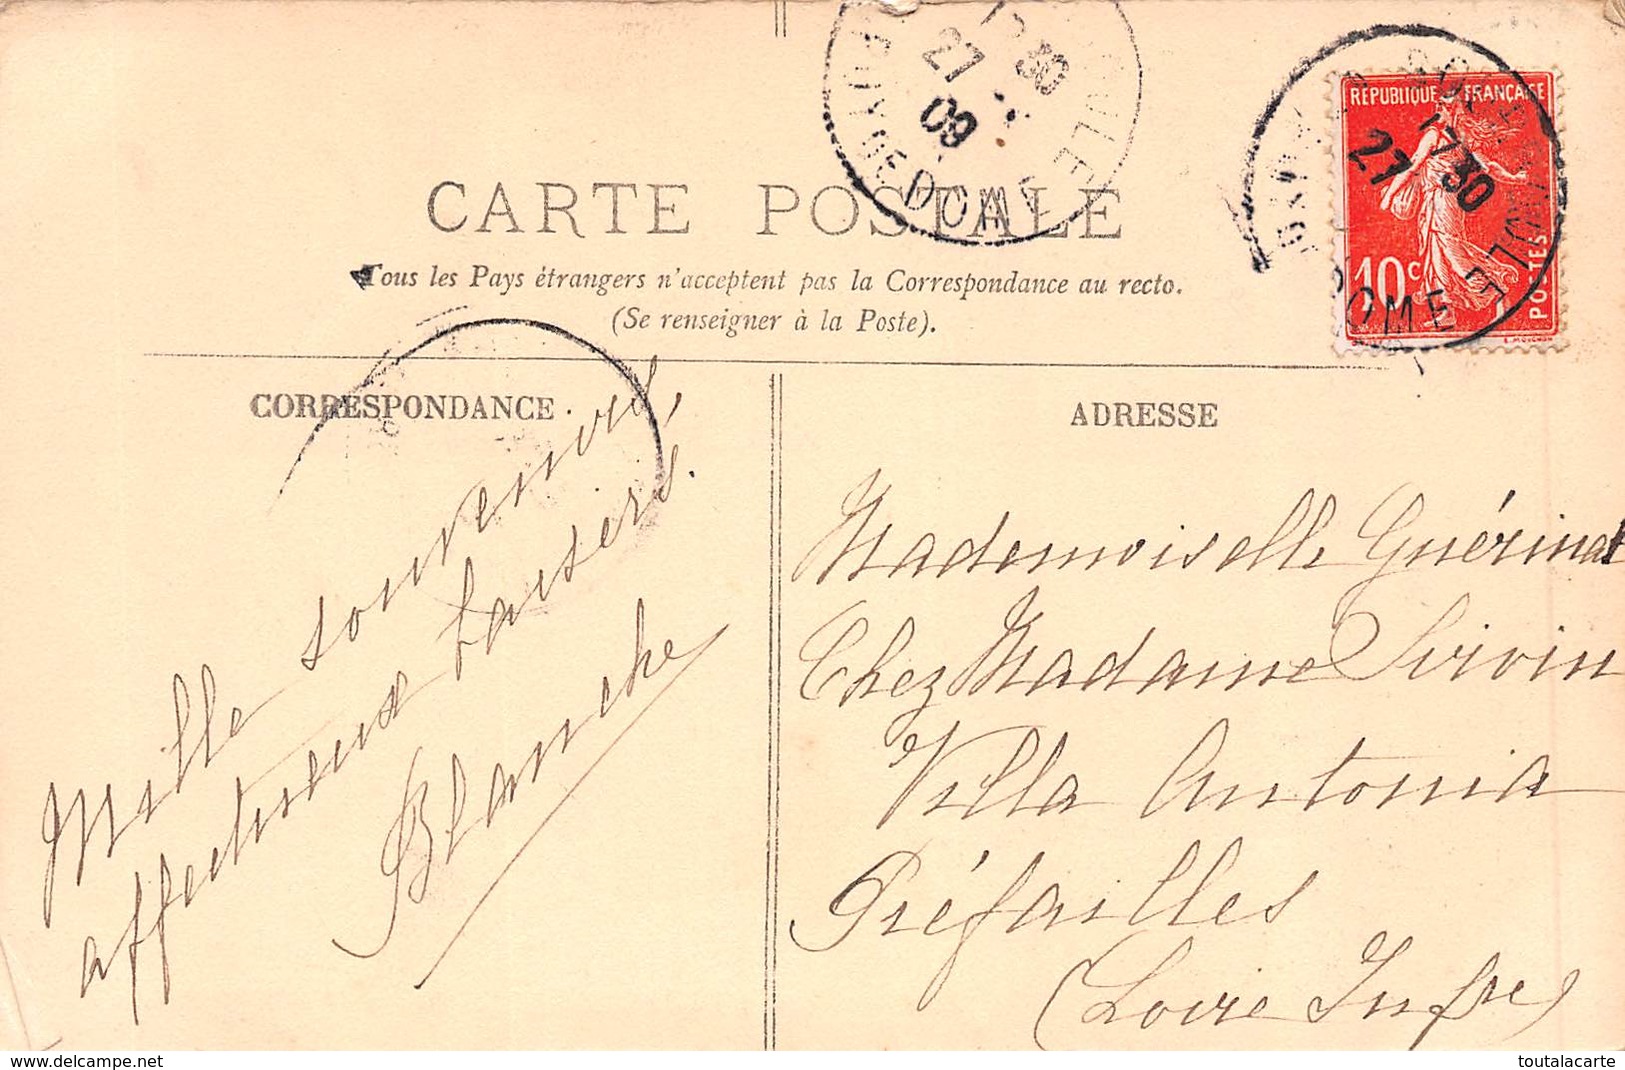 CARTE POSTALE
Tous les Pays étrangers n'acceptent pas la Correspondance au recto.
(Se renseigner à la Poste).
CORRESPONDANCE
Mille souvenirs,
affectueux baisers.
Blanche
ADRESSE
Mademoiselle Guérinat
Chez Madame Sirvin
Villa Antonia
Préfailles
(Loire Infre)
RÉPUBLIQUE FRANÇAISE
10c
POSTES
E. MOUCHON
27
17 30
DOME
27
09
30
PUY DE DOME
delcampe.net
toutalacarte